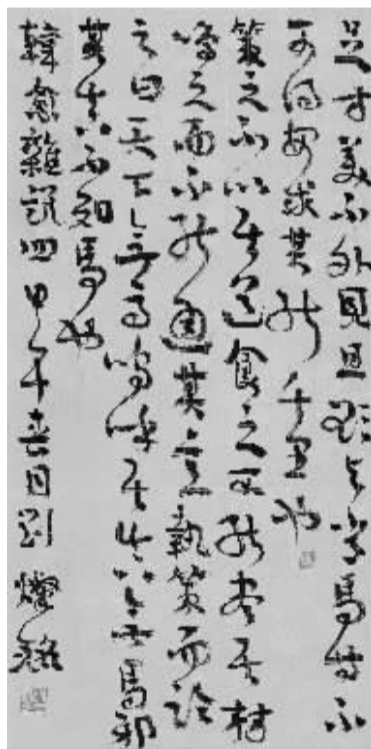 足才美不外見且欲與常馬等不
可得安求其能千里也
策之不以其道食之不能盡其材
鳴之而不能通其意執策而臨
之曰天下無馬嗚呼其真無馬邪
其真不知馬也
韓愈雜說四甲午春日劉燦銘